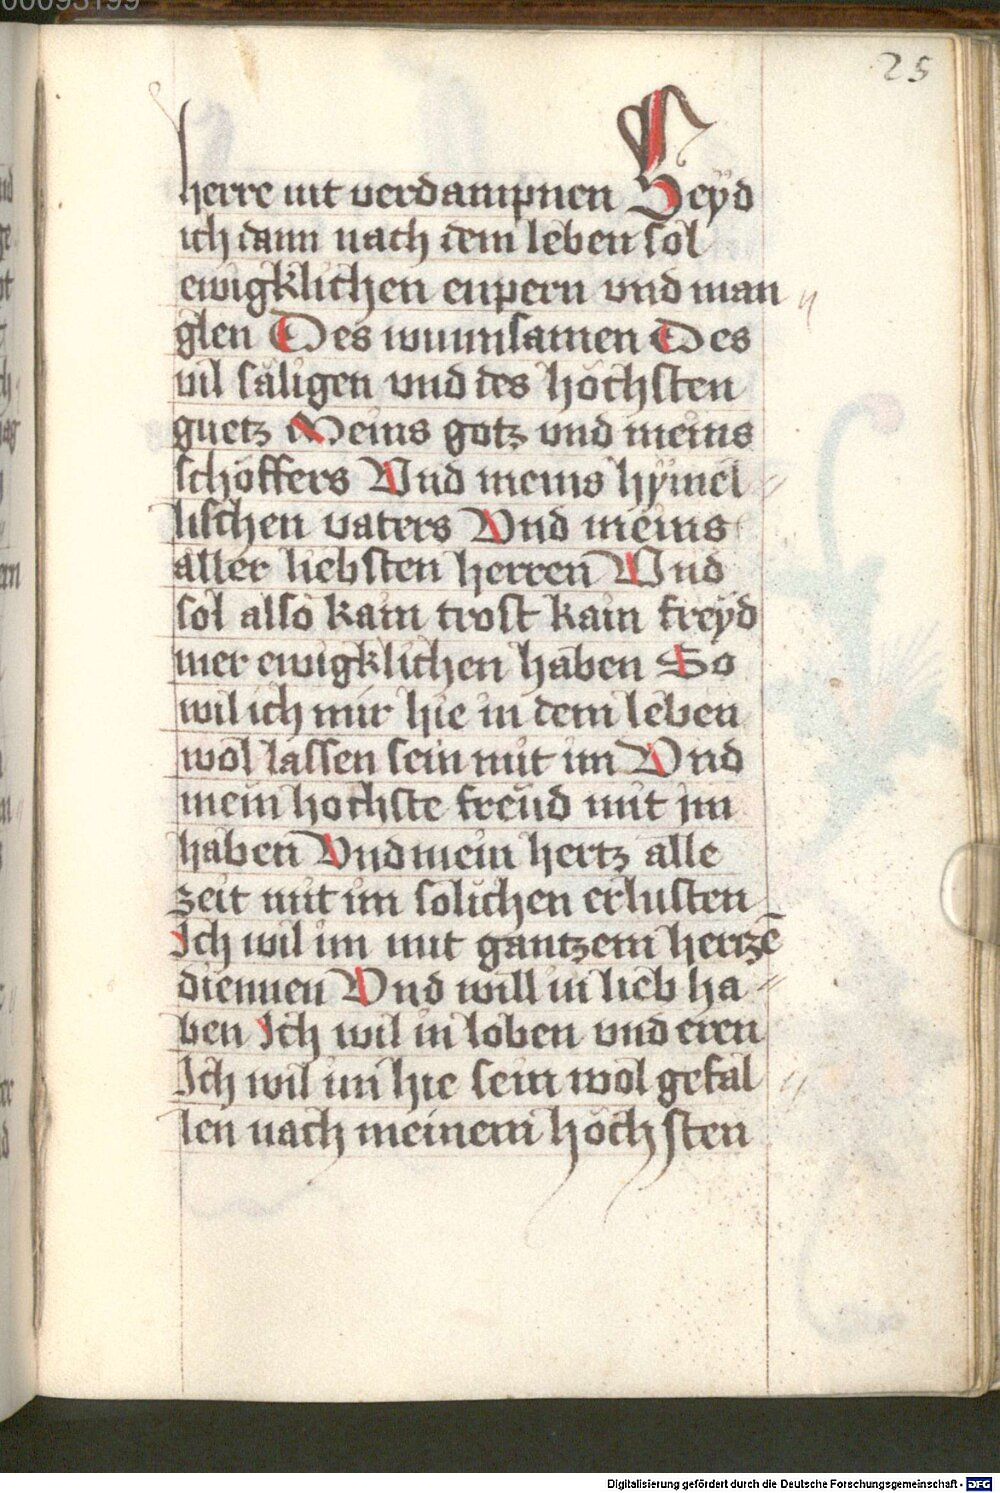 25
herre nit verdampnen Seyd
ich dann nach dem leben sol
ewigklichen enpern vnd man
glen Des wunnsamen Des
vil säligen vnd des höchsten
guetz Meins gotz vnd meins
schöffers Vnd meins hÿmel
lischen vaters Vnd meins
aller liebsten herren Vnd
sol also kain trost kain freÿd
mer ewigklichen haben So
wil ich mir hie in dem leben
wol lassen sein mit im Vnd
mein hochste freüd mit jm
haben Vnd mein hertz alle
zeit mit im solichen erlusten
Ich wil im mit gantzem hertzē
diennen Vnd will in lieb ha
ben Ich wil in loben vnd eren
Ich wil im hie sein wol gefal
len nach meinem höchsten
Digitalisierung gefördert durch die Deutsche Forschungsgemeinschaft - DFG